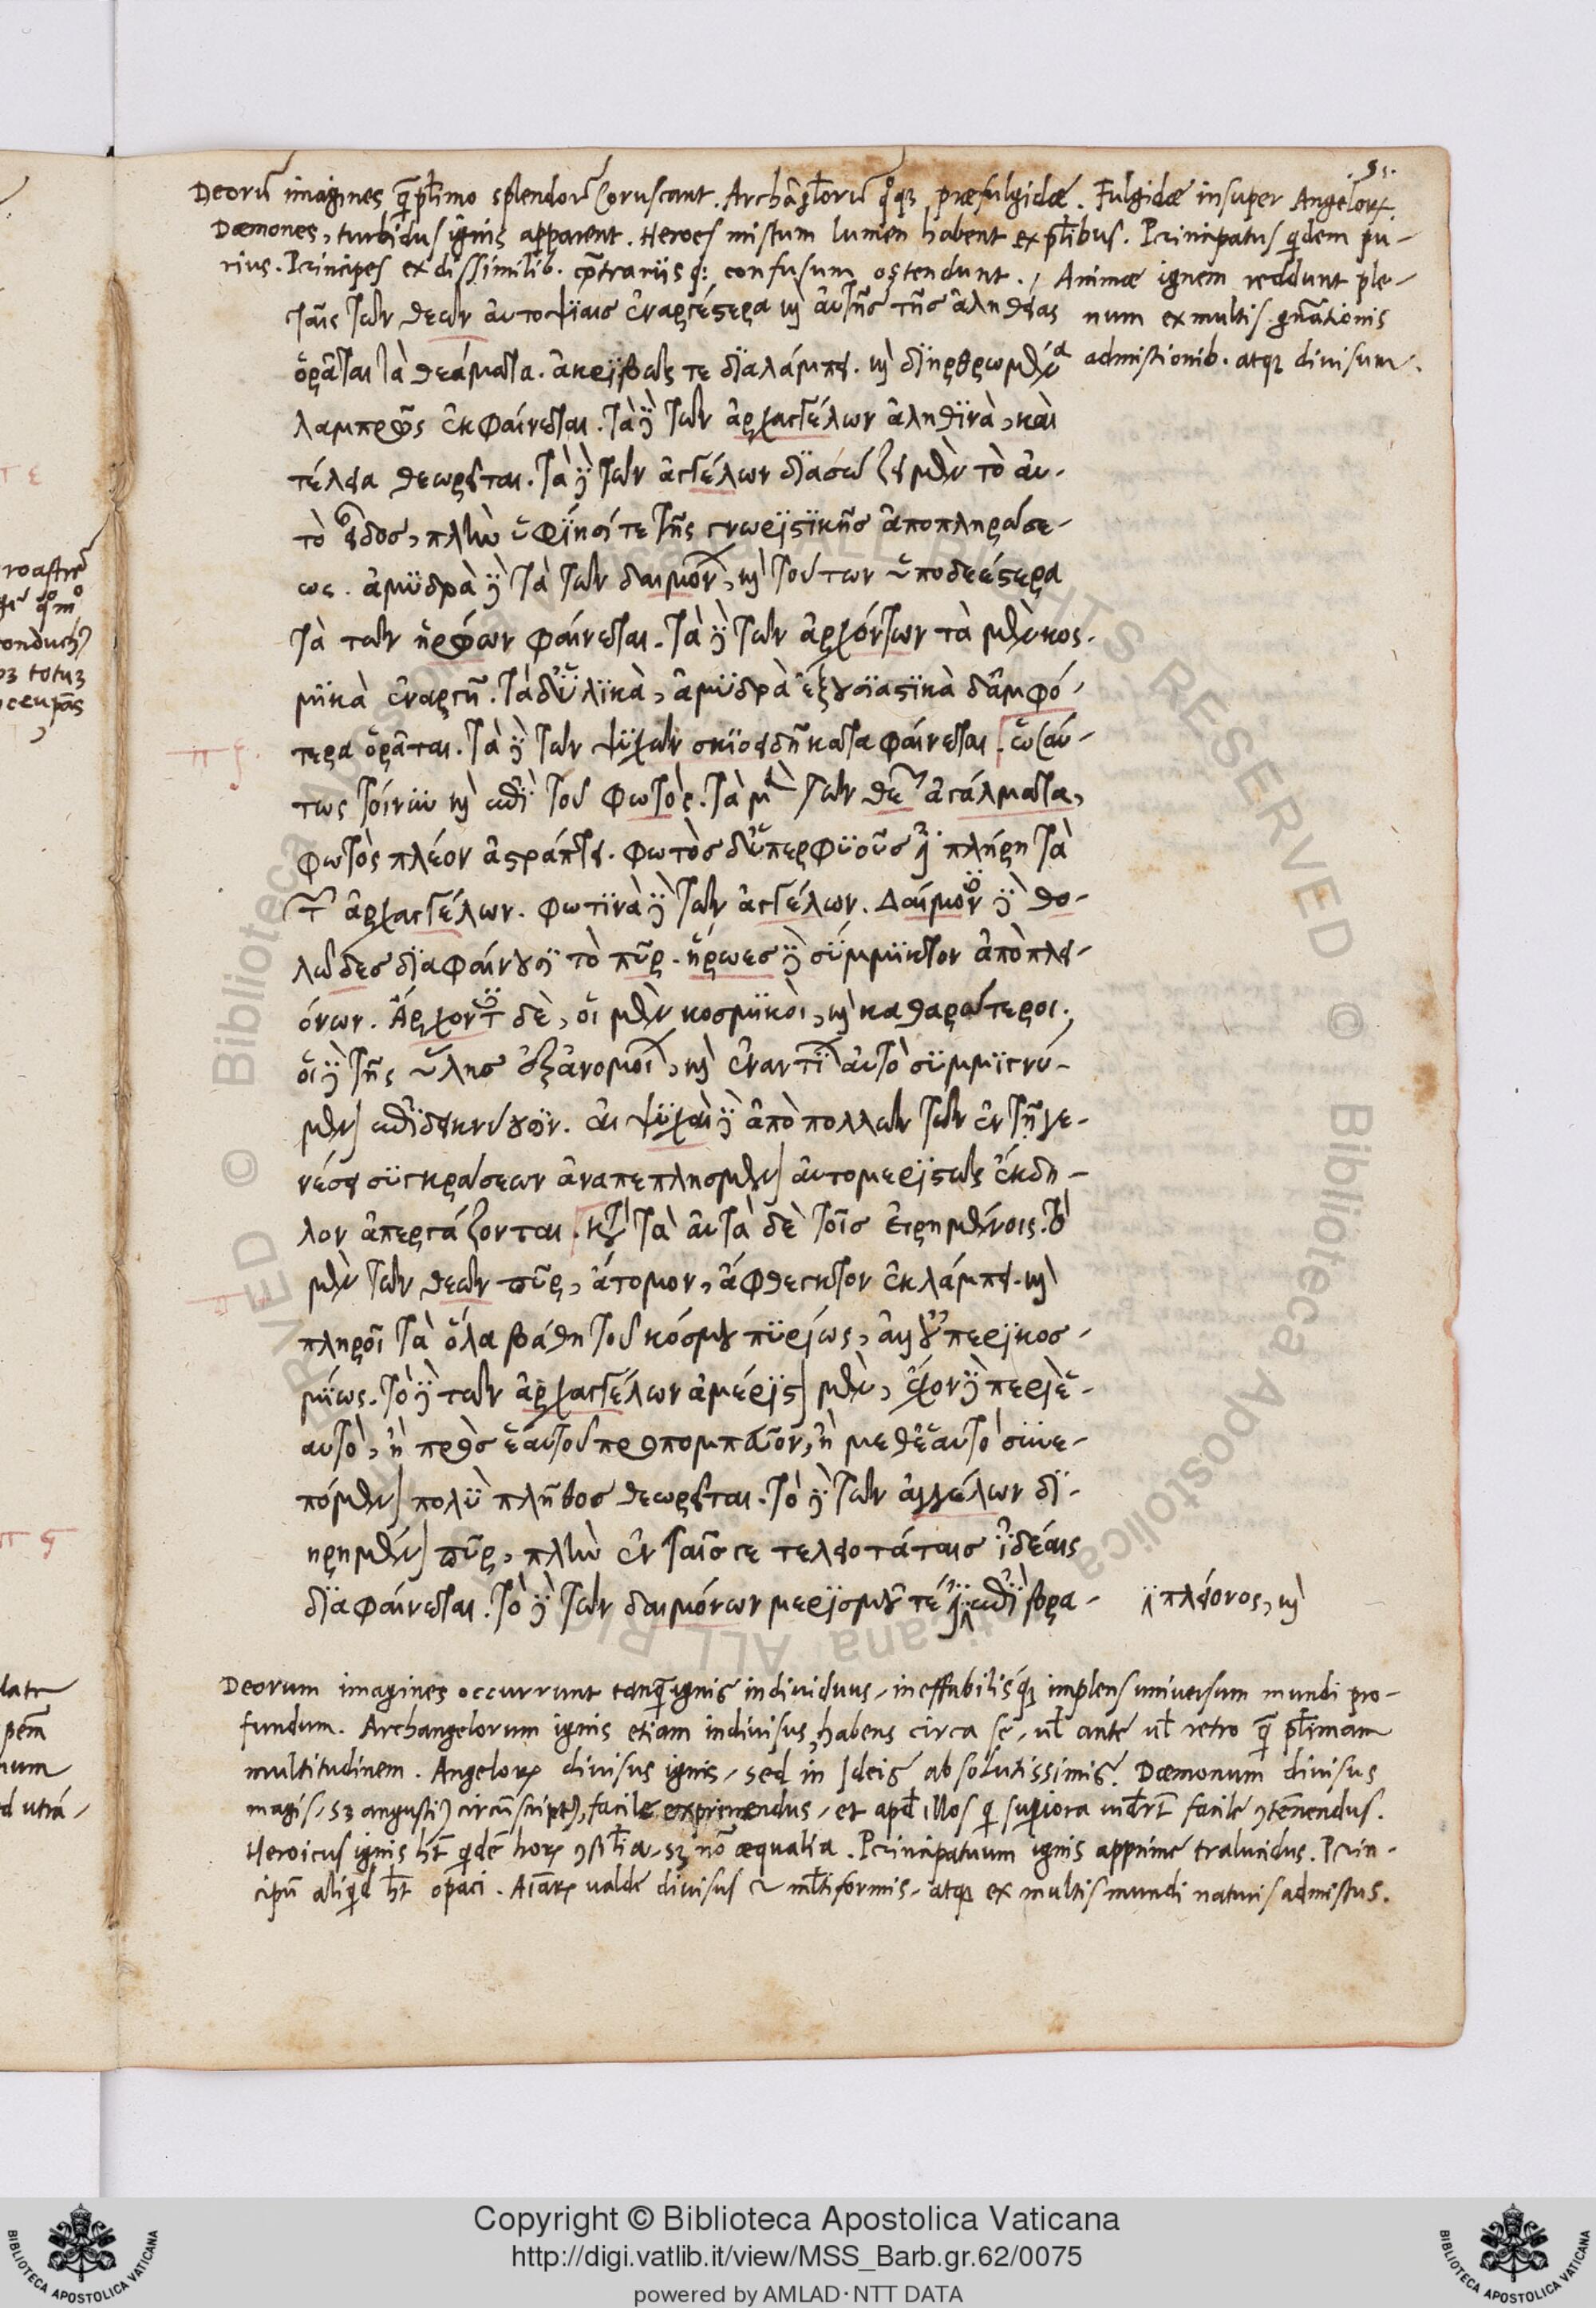 51.
Deorū imagines q̄ pl̄imo splendorē Coruscant. Archāgl̄orū q̊qꝫ præfulgidæ. Fulgidæ insuper Angelorꝝ.
Dæmones, turbidus ignis apparent. Heroes mistum lumen habent ex pl̄ibus. Principatus qidem pu-
rius. Principes ex dissimilib. cōtrariisqꝫ confusum ostendunt. Animæ ignem reddunt ple-
num ex multis gn̄ationis
admistionib. atqꝫ divisum.
ταῖς τῶν θεῶν αὐτοψΐαισ ἐναργέστερα καὶ αὐτῆσ τῆσ ἀληθείας
ὁρᾶται τὰ θεάματα. ἀκριβῶς τε διαλάμπει. καὶ διηρθρωμένα
λαμπρῶς ἐκφαίνεται. τὰ δὲ τῶν ἀρχαγγέλων ἀληθϊνὰ, καὶ
τέλεια θεωρεῖται. τὰ δὲ τῶν ἀγγέλων διασώζει μὲν τὸ αὐ-
τὸ εἶδοσ, πλὴν ὑφίησί τε τῆς γνωριστικῆσ ἀποπληρώσε-
ως. ἀμυδρὰ δὲ τὰ τῶν δαιμόνων, καὶ τούτων ὑποδεέστερα
τὰ τῶν ἡρώων φαίνεται. τὰ δὲ τῶν ἀρχόντων τὰ μὲν κοσ-
μϊκὰ ἐναργῆ. τὰ δ' ὑλϊκὰ, ἀμυδρὰ ἐξουσϊαστϊκὰ δ' ἀμφό-
τερα ὁρᾶται. τὰ δὲ τῶν ψυχῶν σκϊοειδῆ καταφαίνεται. ὡσαύ-
τως τοίνυν καὶ ἐπὶ τοῦ φωτὸς. τὰ μὲν τῶν θεῶν ἀγάλματα,
φωτὸς πλέον ἀστράπτει. φωτὸσ δ' ὑπερφυοῦσ ἐστι πλήρη τὰ
τῶν ἀρχαγγέλων. φωτϊνὰ δὲ τῶν ἀγγέλων. Δαίμονες δὲ θο-
λῶδεσ διαφαίνουσι τὸ πῦρ. ἥρωεσ δὲ σύμμικτον ἀπὸ πλει-
όνων. Ἄρχοντες δὲ, οἱ μὲν κοσμϊκοὶ, καὶ καθαρώτεροι.
οἱ δὲ τῆς ὕλησ ἐξ ἀνομοίων, καὶ ἐναντίων αὐτὸ συμμιγνύ-
μενον ἐπιδεικνύουσιν. αἱ ψυχαὶ δὲ ἀπὸ πολλῶν τῶν ἐν τῇ γε-
νέσει συγκράσεων ἀναπεπλησμένον αὐτομερϊστῶς ἔκδη-
λον ἀπεργάζονται. κατὰ τὰ αὐτὰ δὲ τοῖσ εἰρημένοις. τὸ
μὲν τῶν θεῶν πῦρ, ἄτομον, ἄφθεγκτον ἐκλάμπει. καὶ
πληροῖ τὰ ὅλα βάθη τοῦ κόσμου πυρίως, ἀλλ' οὐ περικοσ-
μίως. τὸ δὲ τῶν ἀρχαγγέλων ἀμέριστον μὲν, ἔχον δὲ περὶ ἑ-
αυτὸ, ἢ πρὸσ ἑαυτοῦ προπομπεῦον, ἢ μεθ' ἑαυτὸ συνε-
πόμενον πολὺ πλῆθοσ θεωρεῖται. τὸ δὲ τῶν ἀγγέλων δι-
ηρημένον πῦρ, πλὴν ἐν ταῖσ γε τελειοτάταισ ἰδέαις
διαφαίνεται. τὸ δὲ τῶν δαιμόνων μερισμῷ τέ ἐστιν ἐπὶ βρα-
ἐπὶ πλείονος, καὶ
Deorum imagines occurrunt tanq̄ ignis individuus, ineffabilisqꝫ implens universum mundi pro-
fundum. Archangelorum ignis etiam indivisus, habens circa se, vl̄ ante vl̄ retro q̄ pl̄imam
multitudinem. Angelorꝝ divisus ignis, sed in Ideis absolutissimis. Dæmonum divisus
magis, sꝫ angustiꝰ circū̄scriptꝰ, facile exprimendus, et apd̄ illos qi supiora vidert̄ facile ꝯtēnendus.
Heroicus ignis ht̄ qidē horꝝ ꝯsil̄ia, sꝫ nō æqualia. Principatuum ignis apprime tralucidus. Prin-
cipū aliqid ht̄ opaci. Aīarꝝ valde divisus & ml̄tiformis, atqꝫ ex multis mundi naturis admistus.
Copyright © Biblioteca Apostolica Vaticana
http://digi.vatlib.it/view/MSS_Barb.gr.62/0075
powered by AMLAD·NTT DATA